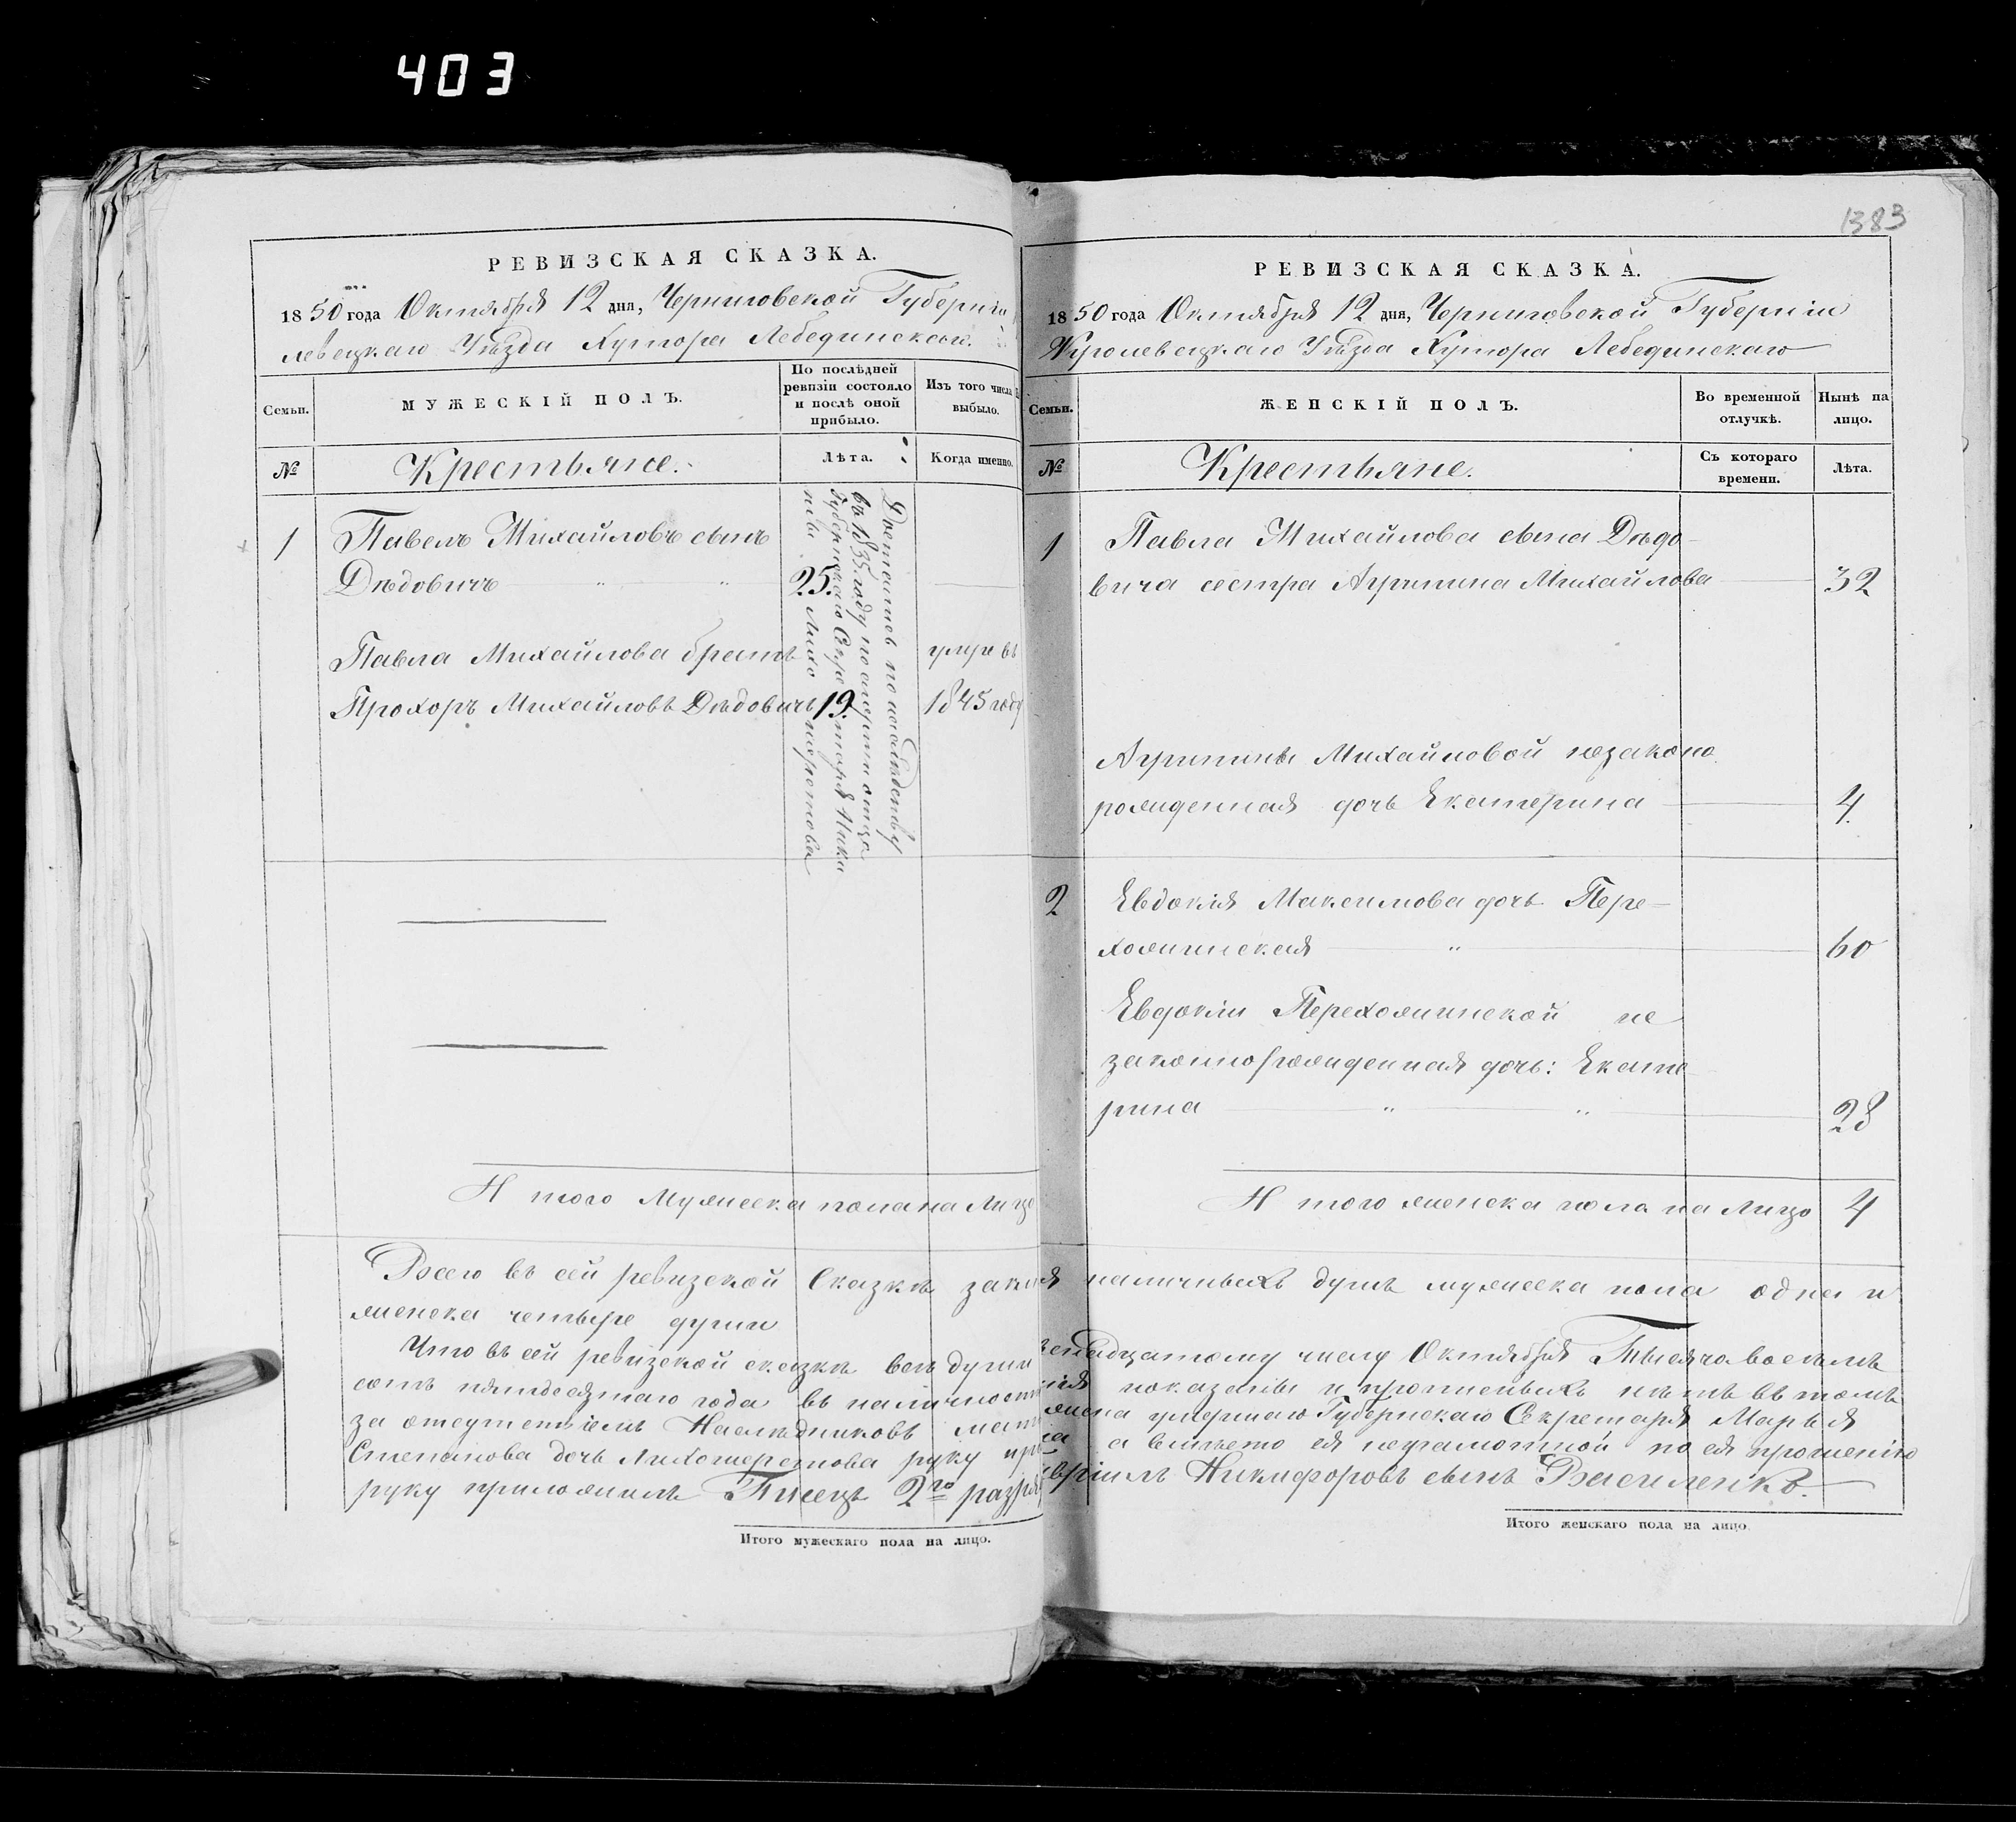 403
РЕВИЗСКАЯ СКАЗКА.
1850 года Октября 12 дня, Черниговской Губерніи
левецкаго Уѣзда Хутора Лебединскаго.
Семьи.
МУЖЕСКІЙ ПОЛЪ.
По послѣдней ревизіи состояло и послѣ оной прибыло.
Изъ того числа выбыло.
№
Крестьяне.
Лѣта.
Когда именно.
1
Павелъ Михайловъ сынъ
Дѣдовичъ 25.
Павла Михайлова братъ умре въ
Прохоръ Михайловъ Дѣдовичъ 19. 1845 году
Достались по наслѣдству
въ 1835 году по смерти отца
Губернскаго Секретаря Ника
Лихошерстова
И того Мужеска пола на Лице
Всего въ сей ревизской Сказкѣ
женска четыре души
Что въ сей ревизской сказкѣ всѣ души
сотъ пятдесятаго года въ наличност
за отсутствіемъ Наслѣдниковъ мат
Степанова дочь Лихошерстова руку
руку приложилъ Писецъ 2го разря
Итого мужескаго пола на лицо.
1383
РЕВИЗСКАЯ СКАЗКА.
1850 года Октября 12 дня, Черниговской Губерніи
Кролевецкаго Уѣзда Хутора Лебединскаго
Семьи.
ЖЕНСКІЙ ПОЛЪ.
Во временной отлучкѣ.
Нынѣ на лицо.
№
Крестьяне.
Съ котораго времени.
Лѣта.
1
Павла Михайлова сына Дѣдо-
вича сестра Агрипина Михайлова 32
Агрипины Михайловой незаконо
рожденная дочь Екатерина 4.
2
Евдокія Максимова дочь Пере-
хожинская 60
Евдокіи Перехожинской не
законнорожденная дочь: Екате
рина 28
И того женска пола на Лицо 4
наличныхъ душъ мужеска пола одна и
надцатому числу Октября Тысяча восемъ
показаны и прописныхъ нѣтъ въ томъ
жена умершаго Губернскаго Секретаря Марья
а вмѣсто ея неграмотной по ея прошенію
Никифоровъ сынъ Василенко.
Итого женскаго пола на лицо.